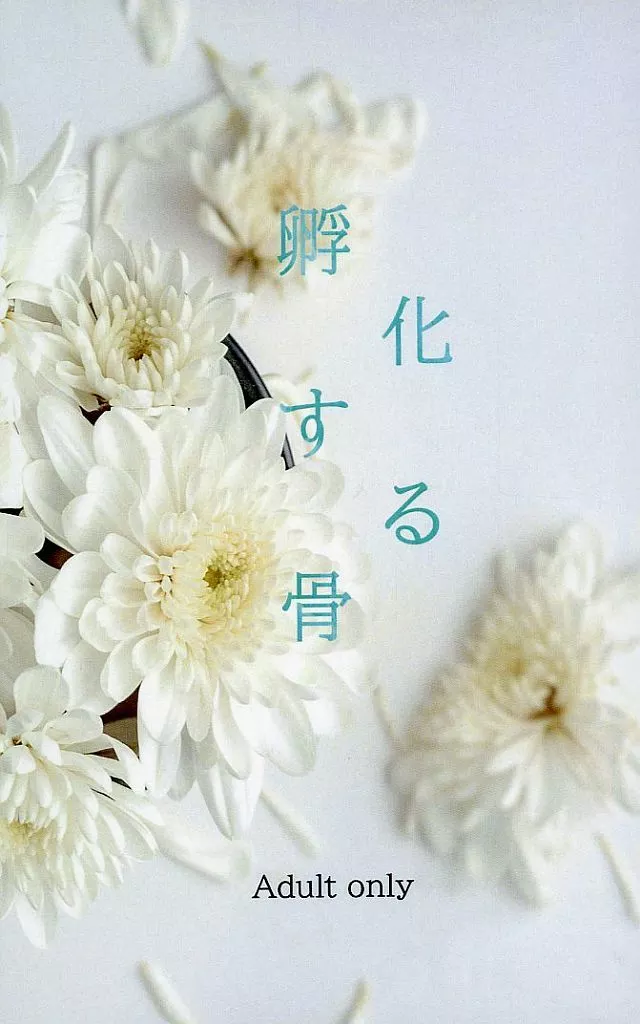 孵化する骨
Adult only